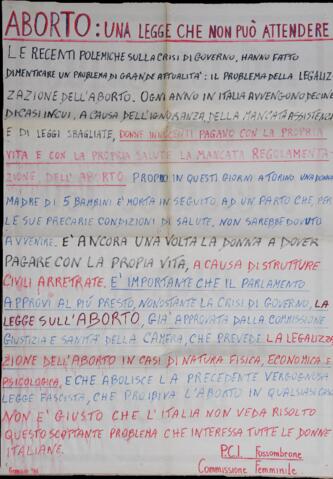 ABORTO: UNA LEGGE CHE NON PUÒ ATTENDERE
LE RECENTI POLEMICHE SULLA CRISI DI GOVERNO, HANNO FATTO
DIMENTICARE UN PROBLEMA DI GRANDE ATTUALITA': IL PROBLEMA DELLA LEGALIZ-
ZAZIONE DELL'ABORTO. OGNI ANNO IN ITALIA AVVENGONO DECINE
DI CASI IN CUI, A CAUSA DELL'IGNORANZA, DELLA MANCATA ASSISTENZA
E DI LEGGI SBAGLIATE, DONNE INNOCENTI PAGANO CON LA PROPRIA
VITA E CON LA PROPRIA SALUTE LA MANCATA REGOLAMENTA-
ZIONE DELL'ABORTO. PROPRIO IN QUESTI GIORNI A TORINO UNA DONNA
MADRE DI 5 BAMBINI E' MORTA IN SEGUITO, AD UN PARTO CHE, PER
LE SUE PRECARIE CONDIZIONI DI SALUTE, NON SAREBBE DOVUTO
AVVENIRE. E' ANCORA UNA VOLTA LA DONNA A DOVER
PAGARE CON LA PROPIA VITA, A CAUSA DI STRUTTURE
CIVILI ARRETRATE. E' IMPORTANTE CHE IL PARLAMENTO
APPROVI AL PIÚ PRESTO, NONOSTANTE LA CRISI DI GOVERNO, LA
LEGGE SULL'ABORTO, GIA' APPROVATA DALLA COMMISSIONE
GIUSTIZIA E SANITÀ DELLA CAMERA, CHE PREVEDE LA LEGALIZZA-
ZIONE DELL'ABORTO IN CASI DI NATURA FISICA, ECONOMICA E
PSICOLOGICA, E CHE ABOLISCE LA PRECEDENTE VERGOGNOSA
LEGGE FASCISTA, CHE PROIBIVA L'ABORTO IN QUALSIASI CASO.
NON E' GIUSTO CHE L'ITALIA NON VEDA RISOLTO
QUESTO SCOTTANTE PROBLEMA CHE INTERESSA TUTTE LE DONNE
ITALIANE.
P.C.I. Fossombrone
Commissione Femminile